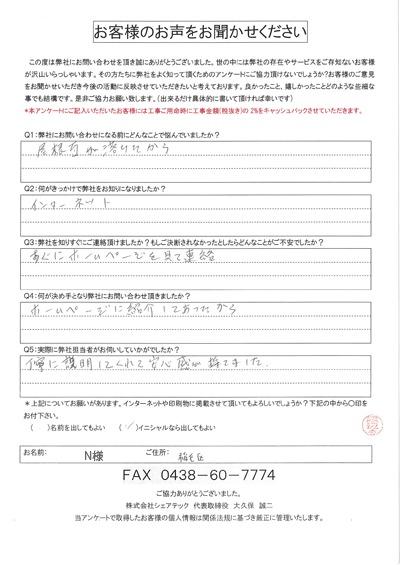 お客様のお声をお聞かせください
この度は弊社にお問い合わせを頂き誠にありがとうございました。世の中には弊社の存在やサービスをご存知ないお客様
が沢山いらっしゃいます。その方たちに弊社をよく知って頂くためのアンケートにご協力頂けないでしょうか?お客様のご意見
をお聞かせいただき今後の活動に反映させていただきたいと考えております。良かったこと、嬉しかったことどのような些細な
事でも結構です。是非ご協力お願い致します。(出来るだけ具体的に書いて頂ければ幸いです)
*本アンケートにご記入いただいたお客様には工事ご用命時に工事金額(税抜き)の 2%をキャッシュバックさせていただきます。
Q1:弊社にお問い合わせになる前にどんなことで悩んでいましたか?
屋根瓦が落けてから
Q2:何がきっかけで弊社をお知りになりましたか?
インターネット
Q3:弊社を知りすぐにご連絡頂けましたか?もしご決断されなかったとしたらどんなことがご不安でしたか?
すぐにホームページを見て連絡
Q4:何が決め手となり弊社にお問い合わせ頂きましたか?
ホームページに紹介してあったから
Q5:実際に弊社担当者がお伺いしていかがでしたか?
丁寧に説明してくれて安心感が持てました.
*上記についてお願いがあります。インターネットや印刷物に掲載させて頂いてもよろしいでしょうか?下記の中から〇印を
お付下さい。
( )名前を出してもよい ( ✓ )イニシャルなら出してもよい
お名前: N様 ご住所: 稲毛区
FAX 0438-60-7774
ご協力ありがとうございました。
株式会社シェアテック 代表取締役 大久保 誠二
当アンケートで取得したお客様の個人情報は関係法規に基づき厳正に管理いたします。